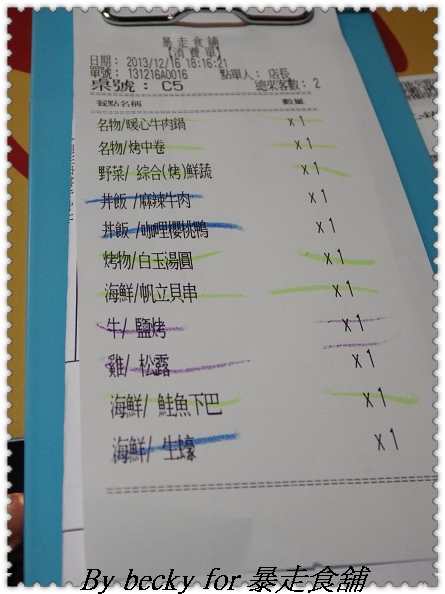 暴走食舖
【消費單】
日期: 2013/12/16 18:16:21
單號: 131216A0016 點單人: 店長
桌號: C5 總來客數: 2
餐點名稱 數量
名物/暖心牛肉鍋 x 1
名物/烤中卷 x 1
野菜/ 綜合(烤)鮮蔬 x 1
丼飯 /麻辣牛肉 x 1
丼飯 /咖哩櫻桃鴨 x 1
烤物/白玉湯圓 x 1
海鮮/帆立貝串 x 1
牛/ 鹽烤 x 1
雞/ 松露 x 1
海鮮/ 鮭魚下巴 x 1
海鮮/ 生蠔 x 1
By becky for 暴走食舖